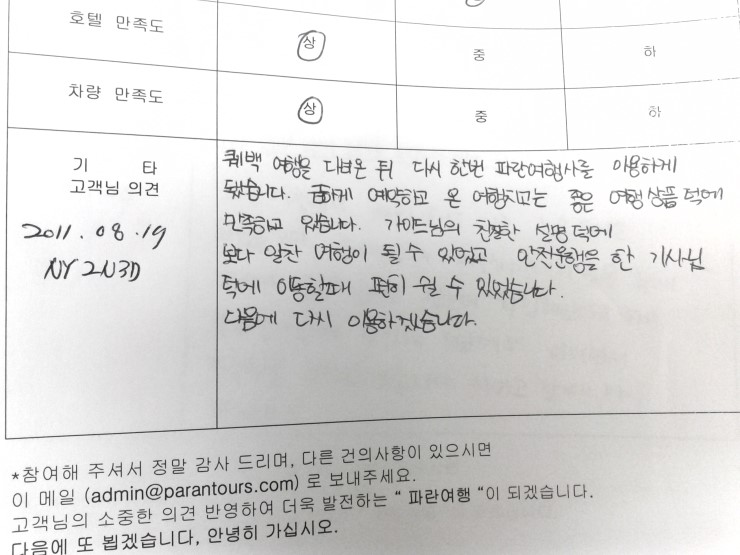 호텔 만족도 상 중 하
차량 만족도 상 중 하
기 타
고객님 의견
2011. 08. 19
NY 2N3D
퀘백 여행을 다녀온 뒤 다시 한번 파란여행사를 이용하게
됐습니다. 급하게 예약하고 온 여행치고는 좋은 여행상품 덕에
만족하고 있습니다. 가이드님의 친절한 설명 덕에
보다 알찬 여행이 될 수 있었고 안전운행을 한 기사님
덕에 이동할때 편히 쉴 수 있었습니다.
다음에 다시 이용하겠습니다.
*참여해 주셔서 정말 감사 드리며, 다른 건의사항이 있으시면
이 메일 (admin@parantours.com) 로 보내주세요.
고객님의 소중한 의견 반영하여 더욱 발전하는 “ 파란여행 “이 되겠습니다.
다음에 또 뵙겠습니다, 안녕히 가십시오.